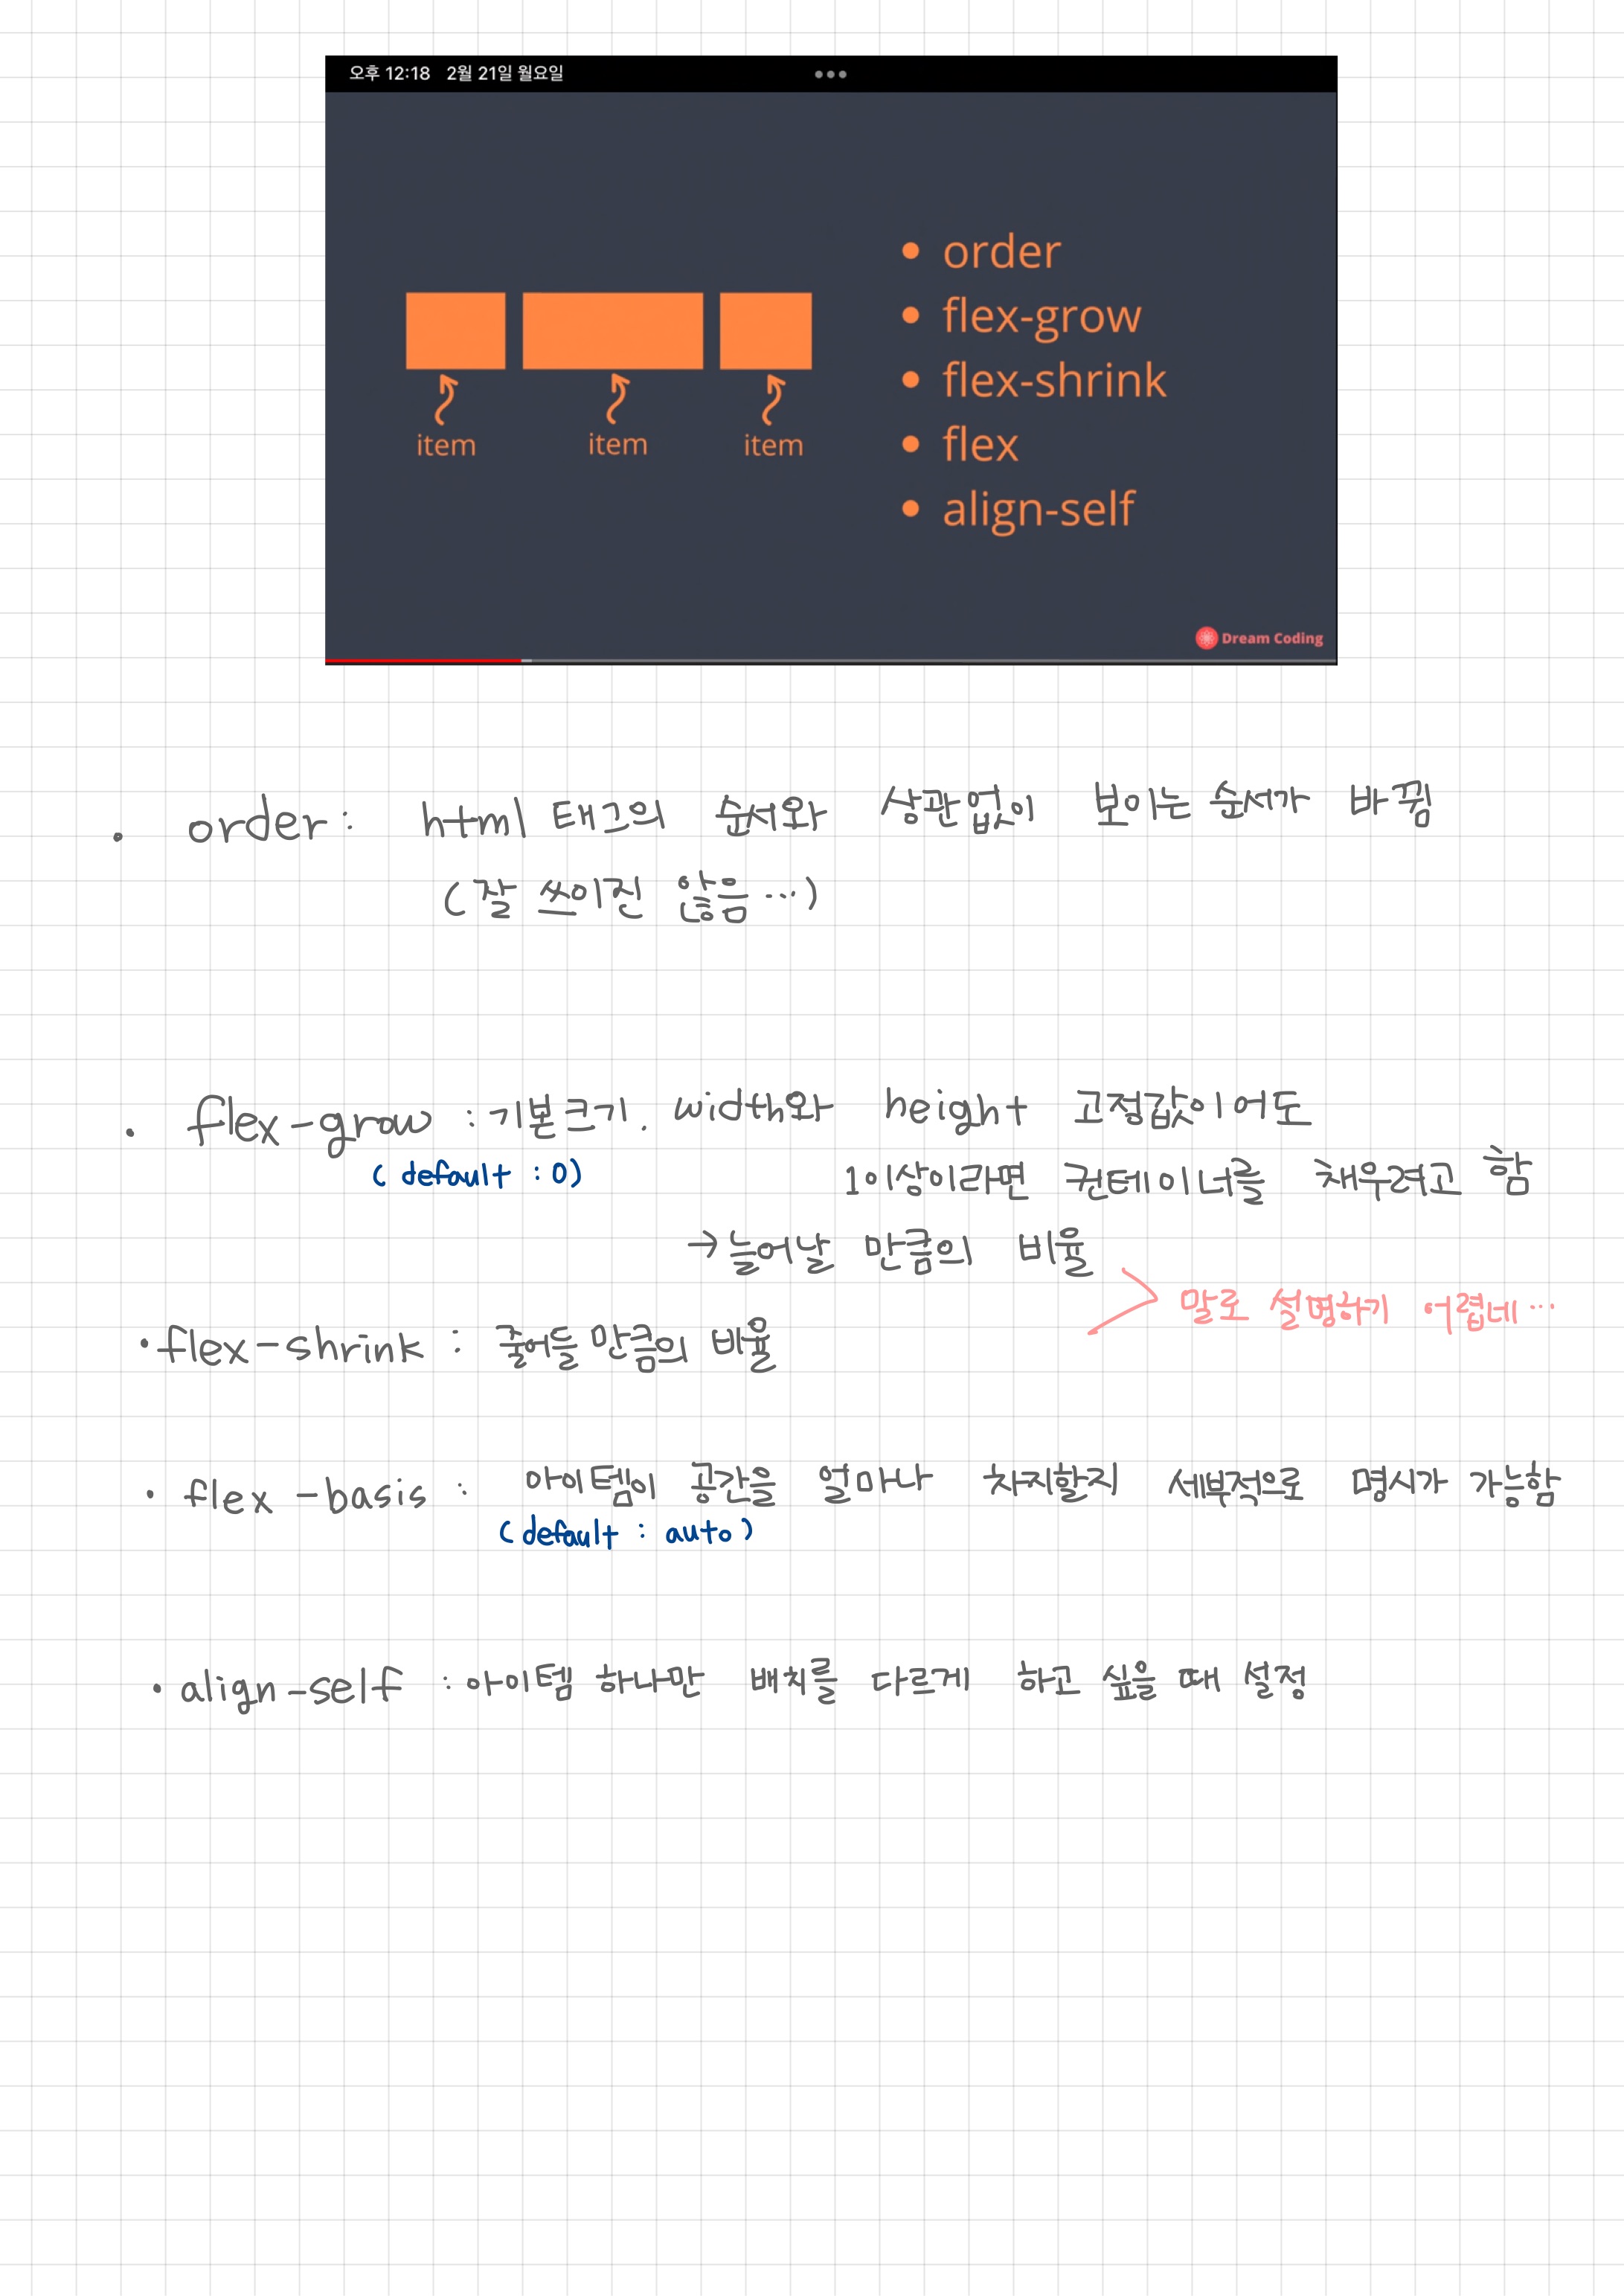 오후 12:18 2월 21일 월요일
order
flex-grow
flex-shrink
flex
align-self
item item item
Dream Coding
order : html 태그의 순서와 상관없이 보이는 순서가 바뀜
(잘 쓰이진 않음...)
flex-grow : 기본크기. width와 height 고정값이어도
(default : 0) 1이상이라면 컨테이너를 채우려고 함
→ 늘어날 만큼의 비율
말로 설명하기 어렵네...
flex-shrink : 줄어들 만큼의 비율
flex-basis : 아이템이 공간을 얼마나 차지할지 세부적으로 명시가 가능함
(default : auto)
align-self : 아이템 하나만 배치를 다르게 하고 싶을 때 설정